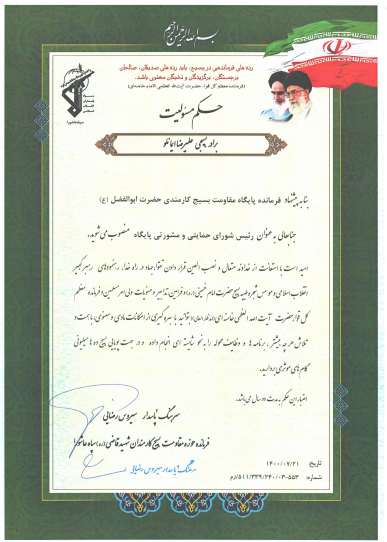 بسم الله الرحمن الرحیم
رده های فرماندهی در بسیج، باید رده های صدیقان، صالحان
برجستگان، برگزیدگان و نخبگان معنوی باشد.
(فرمانده معظم کل قوا، حضرت آیت‌الله العظمی امام خامنه‌ای)
حکم مسئولیت
برادر بسیجی علیرضا ایمانلو
بنا به پیشنهاد فرمانده پایگاه مقاومت بسیج کارمندی حضرت ابوالفضل (ع)
جنابعالی به عنوان رئیس شورای حمایتی و مشورتی پایگاه منصوب می شوید.
امید است با استعانت از خداوند متعال و نصب العین قرار دادن تقوا و جهاد در راه خدا، رهنمودهای رهبر کبیر
انقلاب اسلامی و موسس شجره طیبه بسیج حضرت امام خمینی (ره) و فرامین، تدابیر و منویات ولی امر مسلمین و فرمانده معظم
کل قوا حضرت آیت الله العظمی خامنه ای (مدظله العالی) بتوانید با بهره گیری از امکانات مادی و معنوی، با همت و
تلاش هر چه بیشتر، برنامه ها و وظایف محوله را به نحو شایسته ای انجام داده و در جهت پویایی بسیج ده ها میلیونی
گام های موثری بردارید.
اعتبار این حکم به مدت دو سال می باشد.
سرهنگ پاسدار سیروس رضایی
فرمانده حوزه مقاومت بسیج کارمندان شهید قاضی (ره) سپاه عاشورا
سرهنگ پاسدار سیروس رضایی
تاریخ: ۱۴۰۰/۰۷/۲۱
شماره: ۵۵۳-۰۳-۲۴۰/۳۳۹/۵۱۱/د/م